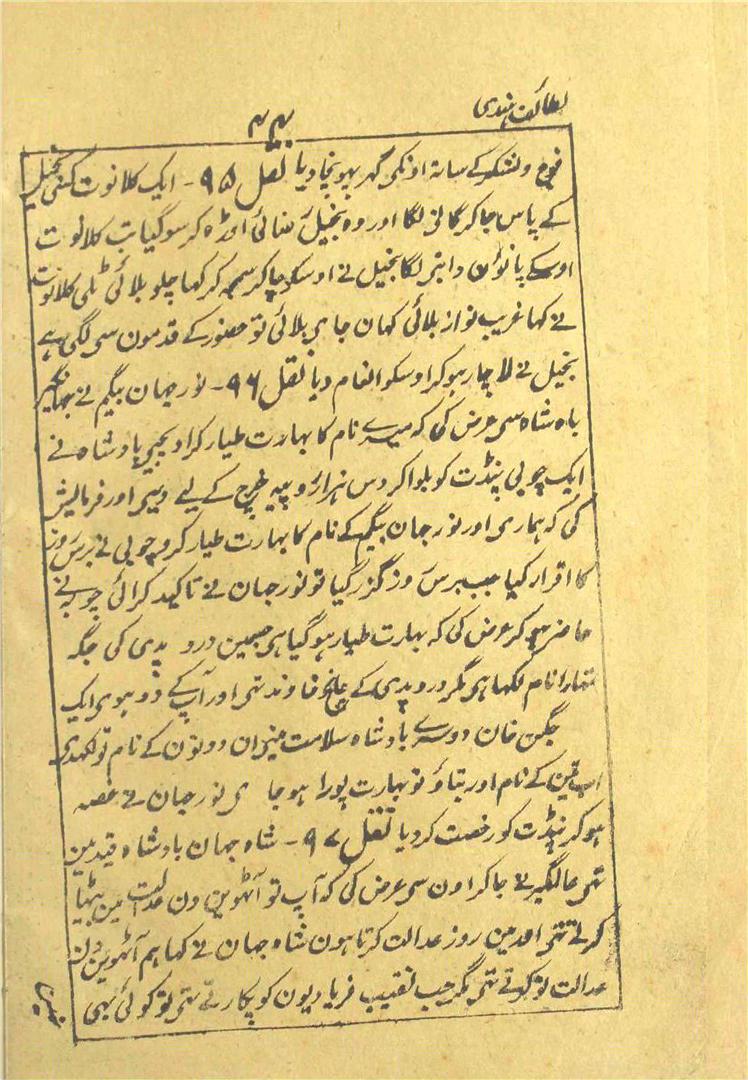 لطائف ہندی
۴۴
فوج ولشکر کے ساتہ اونکی گہر پہونچا دیا نقل ۹۵ - ایک کلانوت کسی بخیل
کے پاس جا کر گانی لگا اور وہ بخیل رضائی اوڑہ کر سو گیا تب کلانوت
اوسکے پانوان دابنی لگا بخیل نے اوسکو چاکر سمجہ کر کہا چلو بلائی ٹلی کلانوت
نے کہا غریب نواز بلائی کہان جاہی بلائی تو حضور کے قدمون سی لگی ہے
بخیل نے لاچار ہو کر اوسکو انعام دیا نقل ۹۶ - نور جہان بیگم نے جہانگیر
باہ شاہ سی عرض کی کہ میرے نام کا بہارت طیار کرا دیجیی بادشاہ نے
ایک چوبی پنڈت کو بلوا کر دس ہزار روپیہ خرچ کے لیے دیی اور فرمایش
کی کہ ہماری اور نور جہان بیگم کے نام کا بہارت طیار کرو چوبی نے برس روز
کا اقرار کیا جب برس روز گزر گیا تو نور جہان نے تاکید کرائی چوبے نے
حاضر ہو کر عرض کی کہ بہارت طیار ہو گیا ہی جسمین درو پدی کی جگہ
تمہارا نام لکہا ہی مگر درو پدی کے پانچ خاوند تہی اور آپ کے دو ہوی ایک
جگن خان دوسرے بادشاہ سلامت میں ان دونون کے نام تو لکہدی
اب تین کے نام اور بتاؤ تو بہارت پورا ہو جا ی نور جہان نے غصہ
ہو کر پنڈت کو رخصت کر دیا نقل ۹۷ - شاہ جہان بادشاہ قید مین
تہی عالمگیر نے جا کر اون سی عرض کی کہ آپ تو آٹہوین دن عدالت مین بیٹہا
کرتے تہی اور مین روز عدالت کرتا ہون شاہ جہان نے کہا ہم آٹہوین دن
عدالت تو کرتے تہی مگر جب نقیب فریادیون کو پکارتے تہی تو کوئی بہی